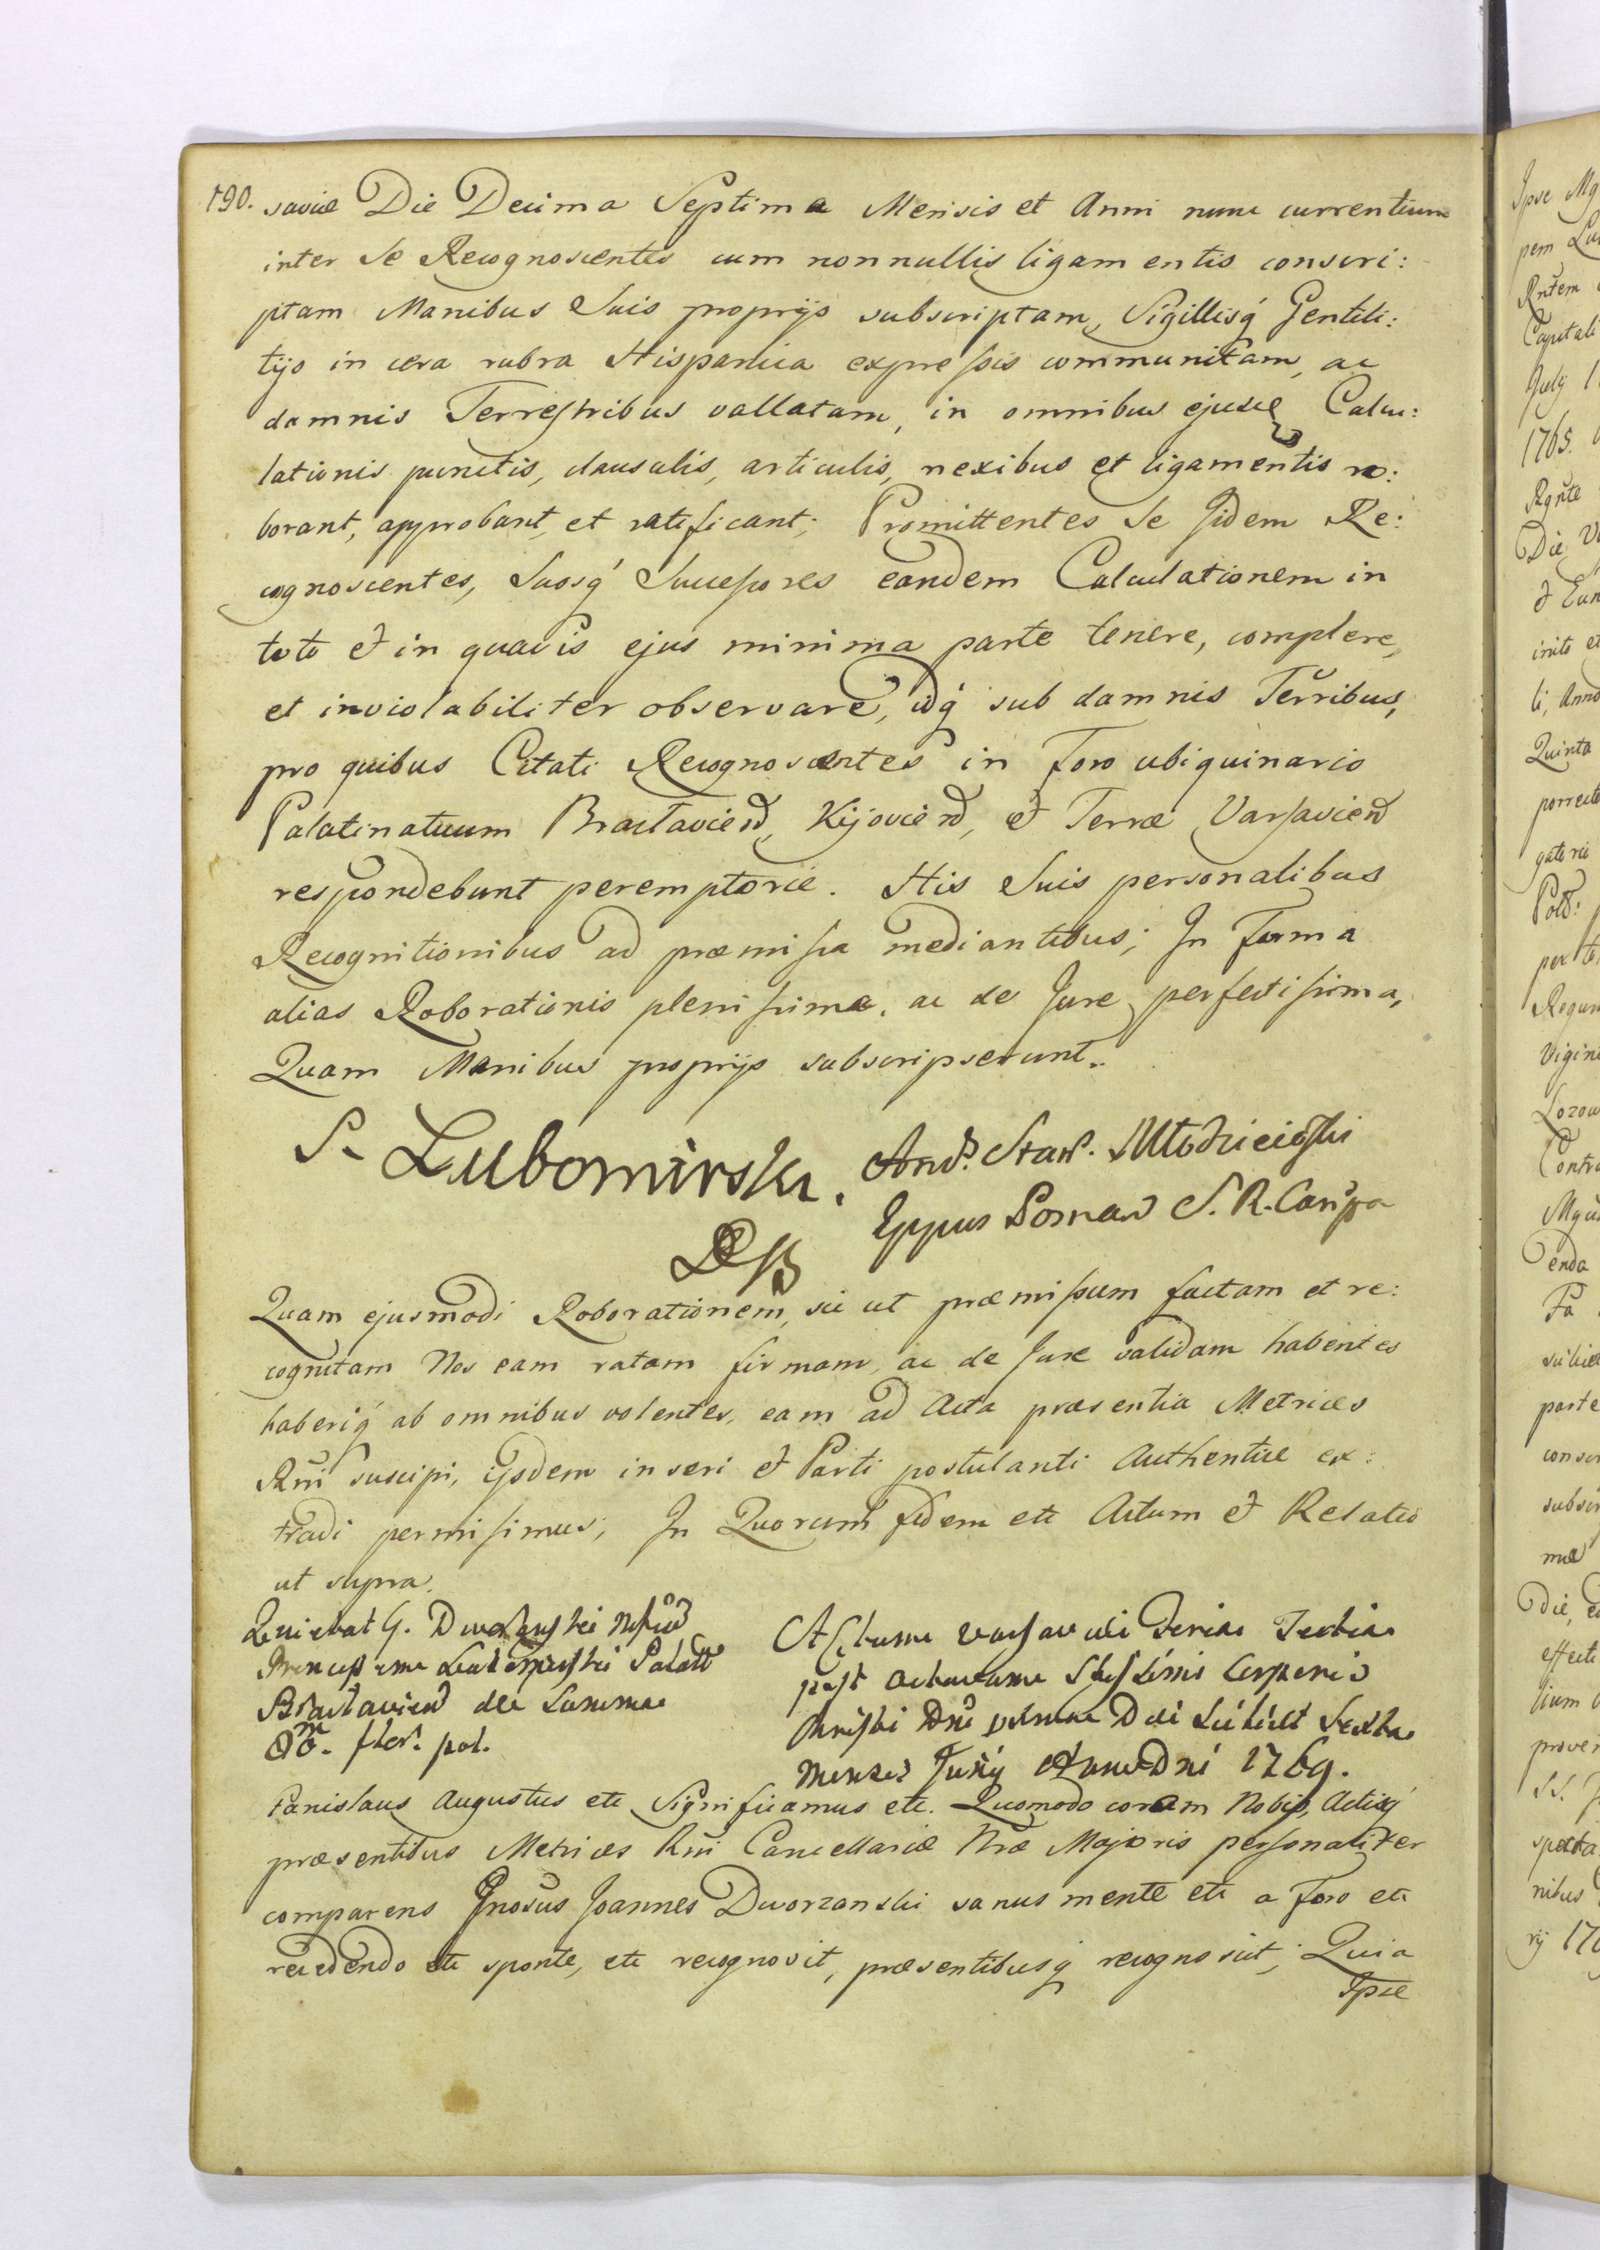 190.
saviæ Die Decima Septima Mensis et Anni nunc currentium
inter Se Recognoscentes cum nonnullis ligamentis conscri:
ptam Manibus Suis proprijs subscriptam, Sigillisq́ Gentili:
tijs in cera rubra Hispanica expressis communitam, ac
damnis Terrestribus vallatam, in omnibus ejusd Calcu:
lationis punctis, clausulis, articulis, nexibus et ligamentis ro:
borant, approbant, et ratificant; Promittentes Se Jidem Re:
cognoscentes, Suosq́ Successores eandem Calculationem in
toto et in quavis ejus minima parte tenere, complere,
et inviolabiliter observare, idq́ sub damnis Terribus,
pro quibus Citati Recognoscentes in Foro ubiquinario
Palatinatuum Braclaviend, Kijoviend, et Terræ Varsaviend
respondebunt peremptorie. His Suis personalibus
Recognitionibus ad præmissa mediantibus; In Forma
alias Roborationis plenissima, ac de Jure perfectissima,
Quam Manibus proprijs subscripserunt.
S. Lubomirski.
And. Stan. Młodzieioski
Eppus Posnan S. R. Canpa
Quam ejusmodi Roborationem, sic ut præmissum factam et re:
cognitam Nos eam ratam firmam, ac de Jure validam habentes
haberiq́ ab omnibus volentes, eam ad Acta præsentia Metrices
Rni suscipi, ijsdem inseri et Parti postulanti Authentice ex:
tradi permisimus; In Quorum fidem etc Actum et Relatio
ut supra.
Quietat G. Dworzanski
Princip Palatt
Braclaviend de Summa
flor. pol.
Actum Varsaviæ Feria Tertia
post Octavam Corporis
Christi Dni Die Sexta
Mensis Junij Anno Dni 1769.
tanislaus Augustus etc Significamus etc. Quomodo coram Nobis, Actisq́
præsentibus Metrices Rni Cancellariæ Nræ Majoris personaliter
comparens Gnosus Joannes Dworzanski sanus mente etc a Foro etc
recedendo etc sponte, etc recognovit, præsentibusq́ recognoscit; Quia
Ipse